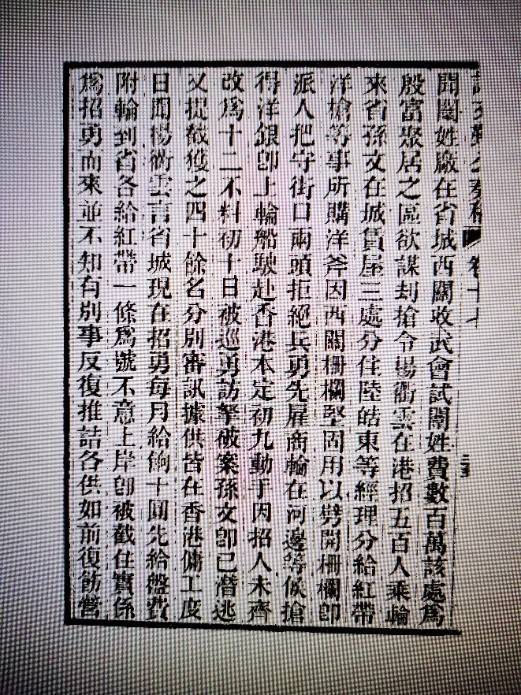 文勤公奏稿 卷十七
聞闈姓廠在省城西關收武會試闈姓費數百萬該處為
殷富聚居之區欲謀刦搶令楊衢雲在港招五百人乘輪
來省孫文在城賃屋三處分住陸皓東等經理分給紅帶
洋槍等事所購洋斧因西關柵欄堅固用以劈開柵欄卽
派人把守街口兩頭拒絕兵勇先雇商輪在河邊等候搶
得洋銀卽上輪船駛赴香港本定初九動手因招人未齊
改爲十二不料初十日被巡勇訪拏破案孫文卽已潛逃
又提截獲之四十餘名分別審訊據供皆在香港傭工度
日聞楊衢雲言省城現在招勇每月給餉十圓先給盤費
附輪到省各給紅帶一條爲號不意上岸卽被截住實係
爲招勇而來並不知有別事反復推詰各供如前復飭營